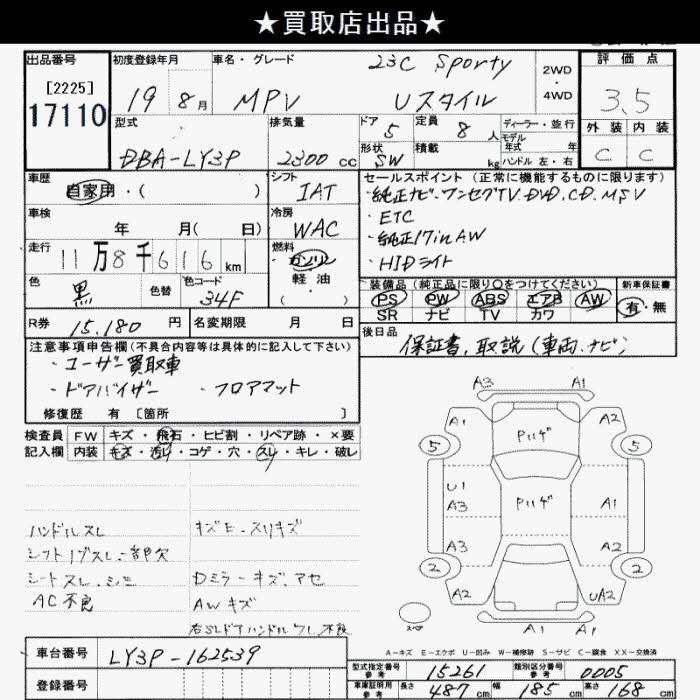 ★買取店出品★
出品番号 初度登録年月 車名・グレード 評価点
[2225]
17110
19 8月 MPV 23C Sporty
Uスタイル
2WD
4WD
3.5
外装 内装
C C
型式 排気量 ドア 定員 ディーラー・並行
モデル
DBA-LY3P 2300 cc 5 8人 年式 年
形状 積載
SW kg ハンドル 左・右
車歴 シフト セールスポイント (正常に機能するものに限ります)
自家用・( ) IAT ・純正ナビ・ワンセグTV.DVD.CD.MSV
・ETC
車検 冷房
年 月( 日) WAC ・純正17inAW
走行 燃料
11万8千616km ガソリン ・HIDライト
軽油
・( )
色 色替 色コード
黒 34F
装備品 (純正品に限り○をつけてください) 新車保証書
PS PW ABS エアB AW 有・無
SR ナビ TV カワ
R券 15,180円 名変期限 月 日
後日品
保証書,取説(車両、ナビ)
注意事項申告欄(不具合内容等は具体的に記入して下さい)
・ユーザー買取車
・ドアバイザー ・フロアマット
修復歴 有 [箇所 ]
検査員 FW キズ・飛石・ヒビ割・リペア跡・×要
記入欄 内装 キズ・汚レ・コゲ・穴・スレ・キレ・破レ
ハンドルスレ キズE・スリキズ
シフトノブスレ、一部欠
シートスレ、シミ Dミラーキズ、アセ
AC不良 AWキズ
A3 A1
A1 Pハゲ A2
5 5
U1
A3 Pハゲ A1
A3 A2
2 2
A2 UA2
A1 A1
スペア
A-キズ E-エクボ U-凹み W-補修跡 S-サビ C-腐食 XX-交換済
車台番号 LY3P-162539
登録番号
型式指定番号 参考 15261 類別区分番号 参考 0005
車庫証明用 参考 長さ 487cm 幅 185cm 高さ 168cm